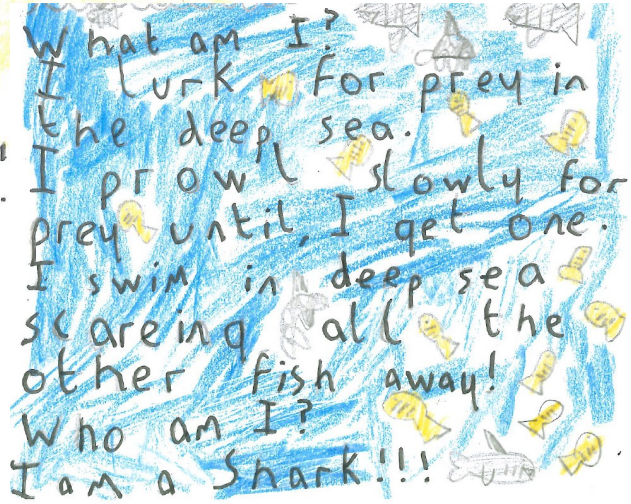 What am I?
I lurk for prey in
the deep sea.
I prowl slowly for
prey until, I get one.
I swim in deep sea
scareing all the
other fish away!
Who am I?
I am a Shark!!!